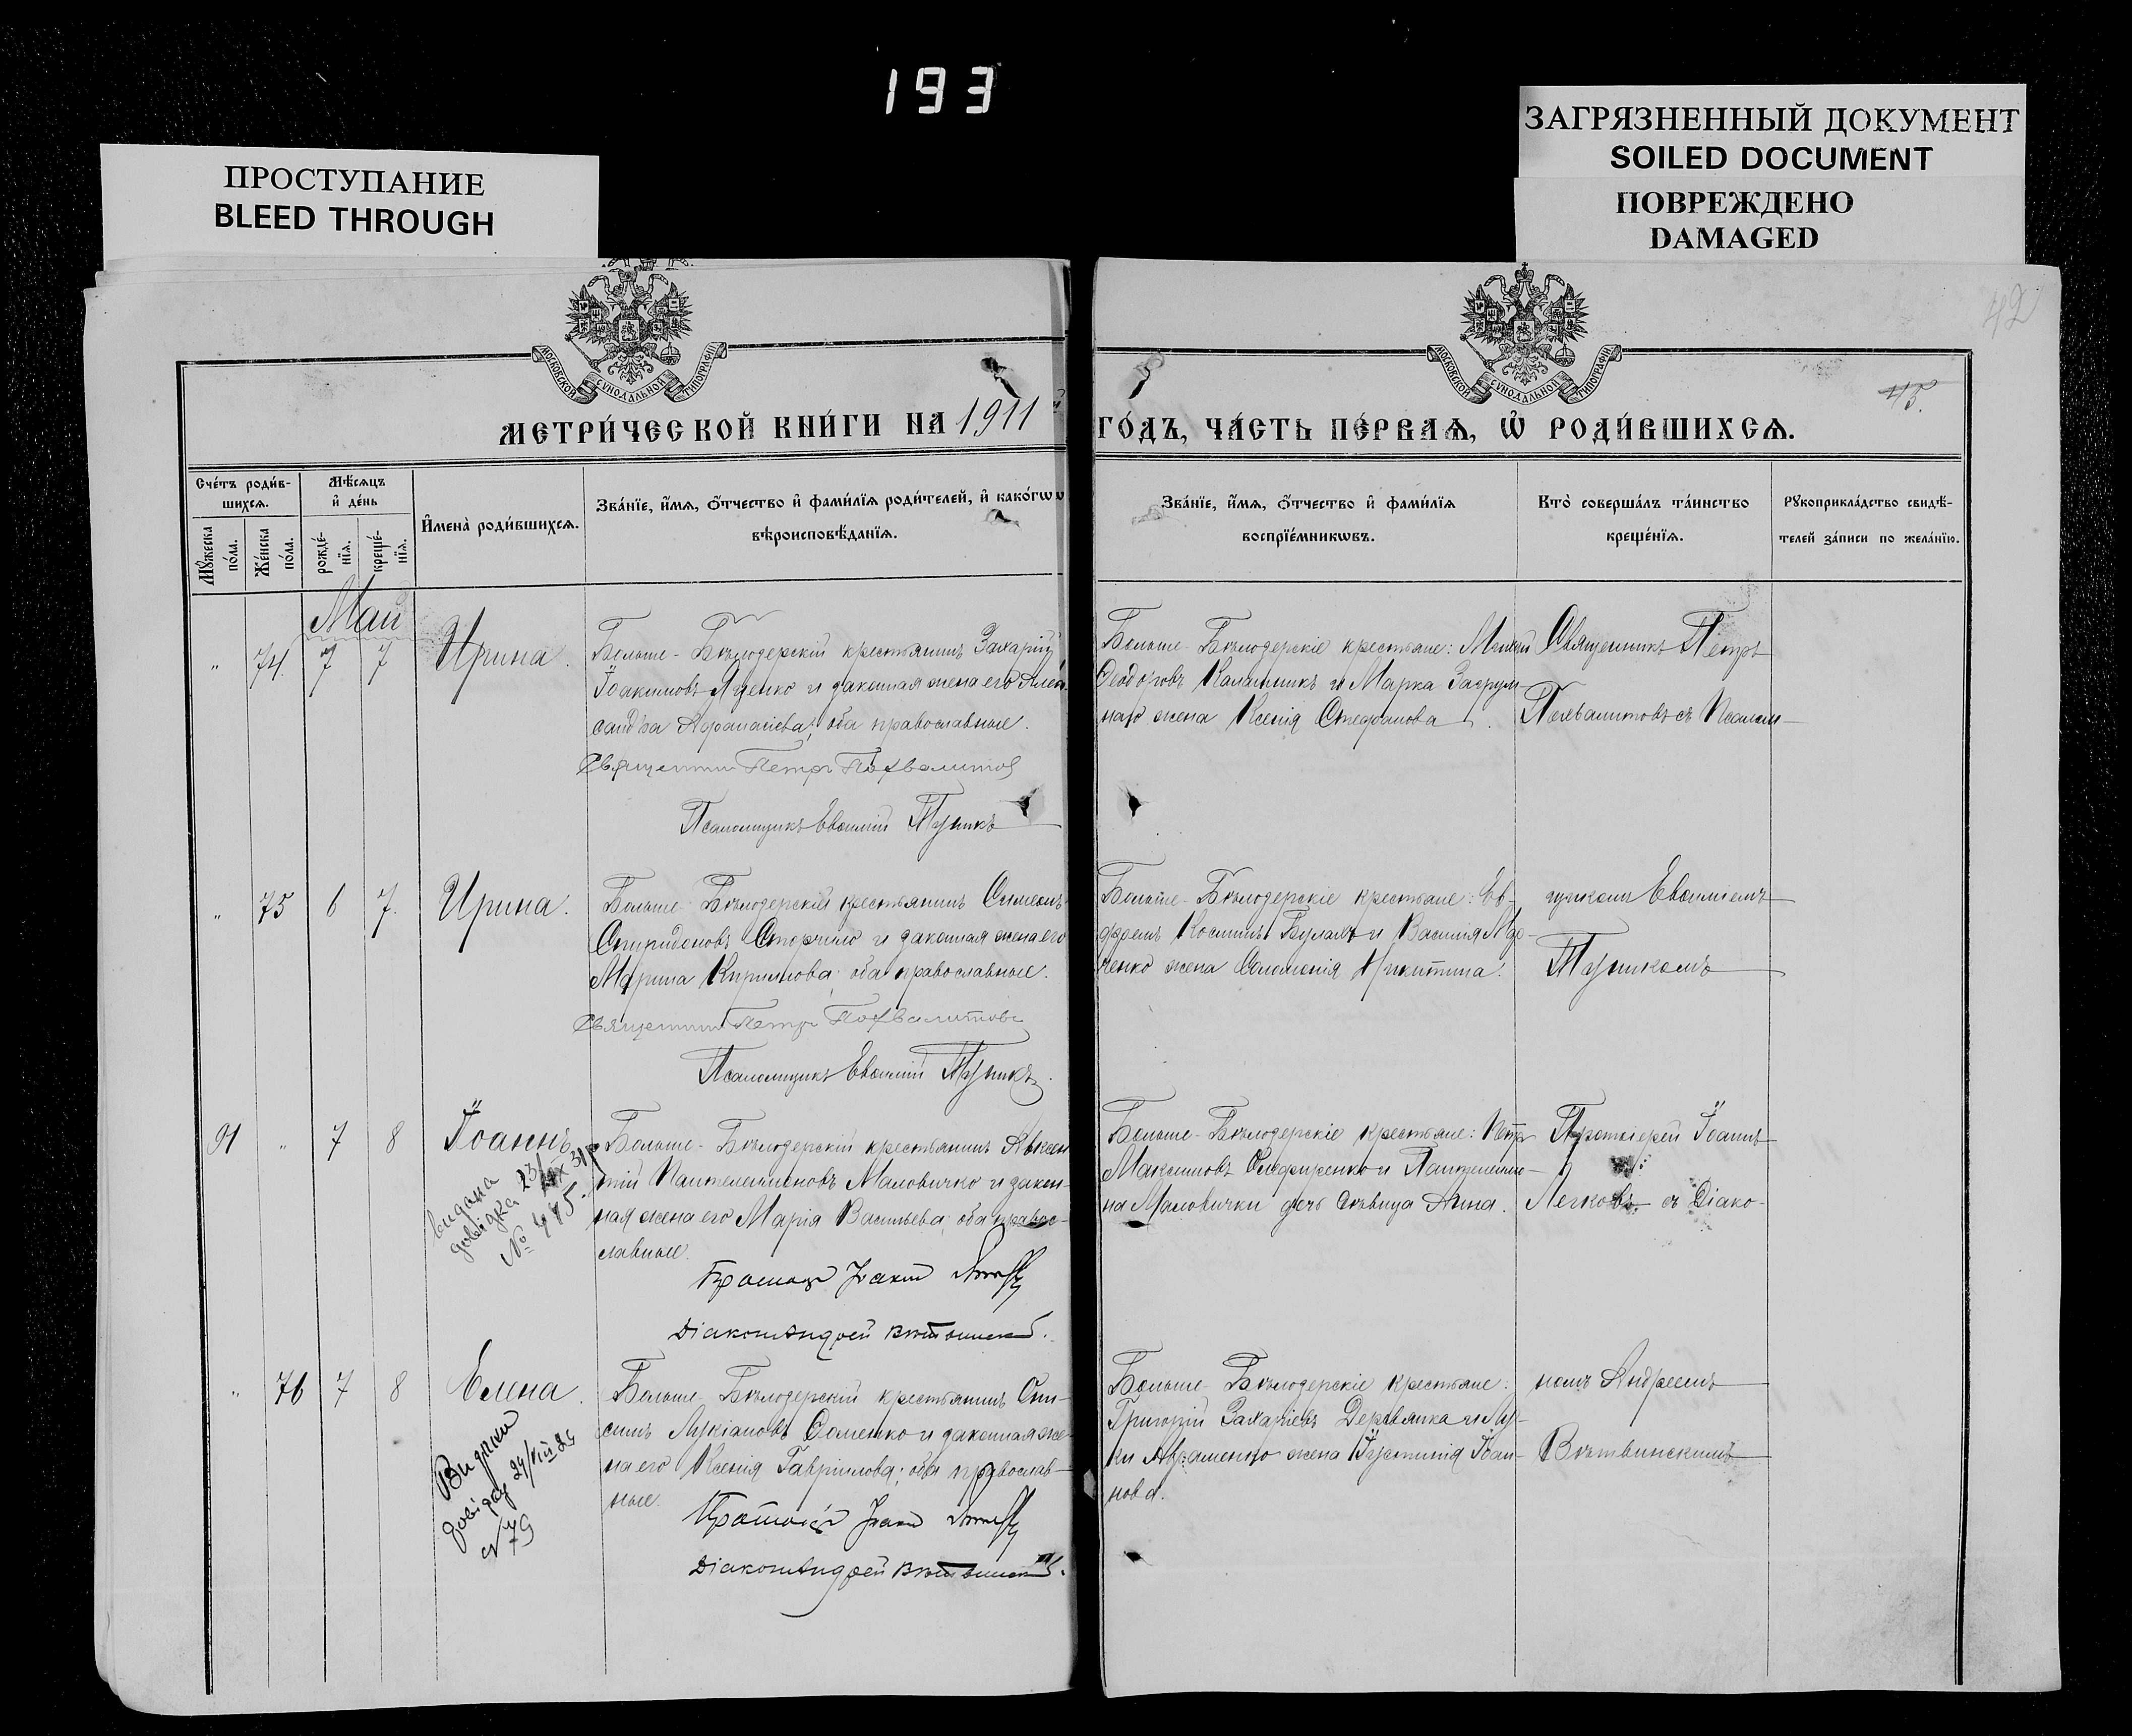 193
ПРОСТУПАНИЕ
BLEED THROUGH
ЗАГРЯЗНЕННЫЙ ДОКУМЕНТ
SOILED DOCUMENT
ПОВРЕЖДЕНО
DAMAGED
42
МОСКОВСКОЙ СѴНОДАЛЬНОЙ ТИПОГРАФІИ
МОСКОВСКОЙ СѴНОДАЛЬНОЙ ТИПОГРАФІИ
МЕТРИ́ЧЕСКОЙ КНИ́ГИ НА 1911 ГО́ДЪ, ЧА́СТЬ ПЕ́РВАѦ, Ѡ҆ РОДИ́ВШИХСѦ.
Сче́тъ роди́в-
шихсѧ.
Мѣ́сѧцъ
и҆ де́нь
И҆мена̀ роди́вшихсѧ.
Зва́нїе, и҆́мѧ, ѻ҆́тчество и҆ фами́лїѧ роди́телей, и҆ како́гѡ
вѣроисповѣ́данїѧ.
Мꙋ́жеска по́ла.
Же́нска по́ла.
рожде́-нїѧ.
креще́-нїѧ.
Зва́нїе, и҆́мѧ, ѻ҆́тчество и҆ фами́лїѧ
воспрїе́мникѡвъ.
Кто̀ соверша́лъ та́инство
креще́нїѧ.
Рꙋкоприкла́дство свидѣ́-
телей за́писи по жела́нїю.
Май
" 74. 7 7 Ирина.
Больше-Бѣлозерскій крестьянинъ Захарій
Іоакимовъ Яценко и законная жена его Алек-
сандра Аѳанасіева; оба православные.
Священникъ Петръ Похвалитовъ
Псаломщикъ Евѳимій Тупикъ
Больше-Бѣлозерскіе крестьяне:
Ѳеодоровъ Калашникъ и Марка
жена Ксенія Стефанова.
Священникъ Петръ
Похвалитовъ съ Псалом-
" 75 6 7. Ирина.
Больше-Бѣлозерскій крестьянинъ Симеонъ
Спиридоновъ Сторчило и законная жена его
Марина Кириллова; оба православные.
Священникъ Петръ Похвалитовъ
Псаломщикъ Евѳимій Тупикъ.
Больше-Бѣлозерскіе крестьяне: Еф-
ремъ Косминъ и Василія
жена Соломонія Никитина.
щикомъ Евѳиміемъ
Тупикомъ
91 " 7 8 Іоаннъ
видана
довідка 23/IX 31
№ 445.
Больше-Бѣлозерскій крестьянинъ Авксен-
тій Пантелеимоновъ Маловичко и закон-
ная жена его Марія Васильева; оба право-
славные.
Протоіерей Іоаннъ
Діаконъ Андрей Вѣтвинскій.
Больше-Бѣлозерскіе крестьяне: Петръ
Максимовъ и Пантелеимо-
на Маловички дочь дѣвица Анна.
Протоіерей Іоаннъ
съ Діако-
" 76 7 8 Елена.
Видано
довідку
№ 79
Больше-Бѣлозерскій крестьянинъ Они-
симъ Лукіановъ Соменко и законная же-
на его Ксенія Гавріилова; оба православ-
ные.
Протоіерей Іоаннъ
Діаконъ Андрей Вѣтвинскій.
Больше-Бѣлозерскіе крестьяне:
Григорій Захаріевъ Деревянка и Лу-
ки Авраменко жена Іустинія Іоан-
нова.
номъ Андреемъ
Вѣтвинскимъ